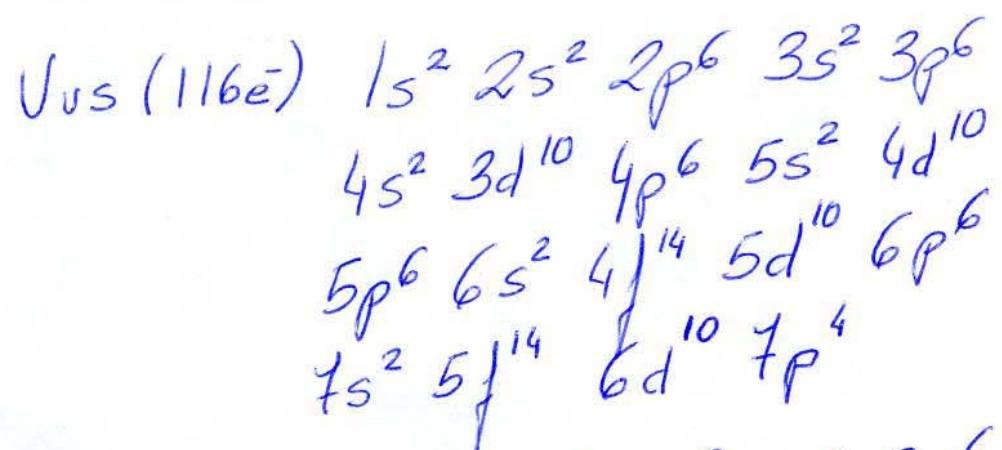 Uus (116ē) 1s² 2s² 2p⁶ 3s² 3p⁶
4s² 3d¹⁰ 4p⁶ 5s² 4d¹⁰
5p⁶ 6s² 4f¹⁴ 5d¹⁰ 6p⁶
7s² 5f¹⁴ 6d¹⁰ 7p⁴